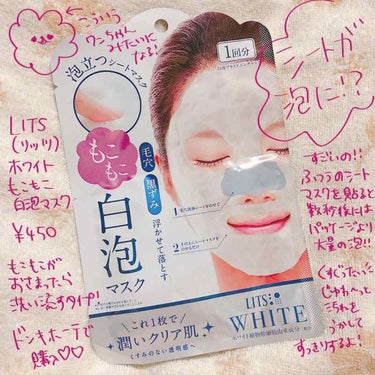 こういう
ワンちゃん
みたいに
なる!
シートが
泡に!?
LITS
(リッツ)
ホワイト
もこもこ
白泡マスク
¥450
もこもこが
おさまったら
洗い流すタイプ!
ドンキホーテで
購入♡♡
すごいの!!
ふつうのシート
マスクを貼ると
数秒後には
パッケージより
大量の泡!!
くすぐったい
じゅわ〜っと
汚れを
うかして
すっきりするよ!
1回分
泡立つシートマスク
もこ
もこ
白泡
マスク
毛穴
黒ずみ
浮かせて落とす
1
2
これ1枚で
潤いクリア肌
くすみのない透明感へ
LITS
WHITE